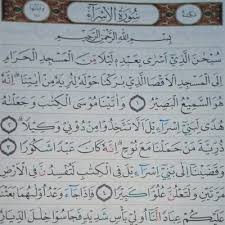 سُورَةُ الْإِسْرَاءِ
بِسْمِ اللَّهِ الرَّحْمَٰنِ الرَّحِيمِ
سُبْحَٰنَ الَّذِي أَسْرَىٰ بِعَبْدِهِ لَيْلًا مِّنَ الْمَسْجِدِ الْحَرَامِ
إِلَى الْمَسْجِدِ الْأَقْصَا الَّذِي بَٰرَكْنَا حَوْلَهُ لِنُرِيَهُ مِنْ آيَٰتِنَا إِنَّهُ
هُوَ السَّمِيعُ الْبَصِيرُ ۝١ وَآتَيْنَا مُوسَى الْكِتَٰبَ وَجَعَلْنَٰهُ
هُدًى لِّبَنِي إِسْرَاءِيلَ أَلَّا تَتَّخِذُوا مِن دُونِي وَكِيلًا ۝٢
ذُرِّيَّةَ مَنْ حَمَلْنَا مَعَ نُوحٍ إِنَّهُ كَانَ عَبْدًا شَكُورًا ۝٣
وَقَضَيْنَا إِلَىٰ بَنِي إِسْرَاءِيلَ فِي الْكِتَٰبِ لَتُفْسِدُنَّ فِي الْأَرْضِ
مَرَّتَيْنِ وَلَتَعْلُنَّ عُلُوًّا كَبِيرًا ۝٤ فَإِذَا جَاءَ وَعْدُ أُولَىٰهُمَا بَعَثْنَا
عَلَيْكُمْ عِبَادًا لَّنَا أُولِي بَأْسٍ شَدِيدٍ فَجَاسُوا خِلَٰلَ الدِّيَارِ